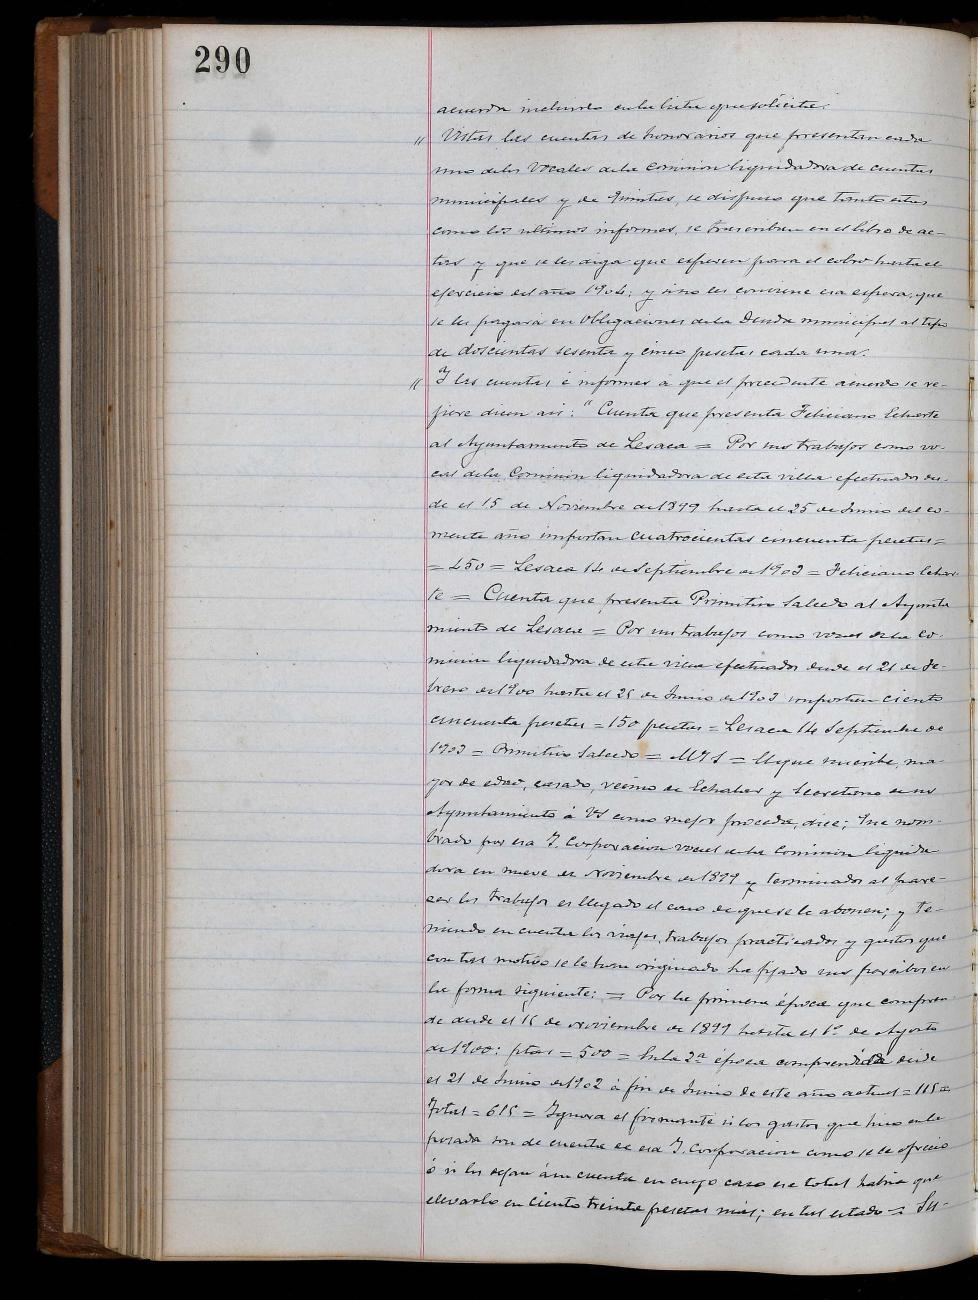 290
acuerda incluirlo en la lista que solicita.
" Vistas las cuentas de honorarios que presentan cada
uno de los Vocales de la Comision liquidadora de cuentas
municipales y de suministros, se dispuso que tanto estas
como los ultimos informes, se trascriban en el libro de ac-
tas y que se les diga que esperen para el cobro hasta el
ejercicio del año 1904; y si no les conviene esa espera, que
se les pagará en Obligaciones de la Deuda municipal al tipo
de doscientas sesenta y cinco pesetas cada una.
" Y las cuentas é informes á que el precedente acuerdo se re-
fiere dicen asi: "Cuenta que presenta Feliciano Echarte
al Ayuntamiento de Lesaca = Por mis trabajos como vo-
cal de la Comision liquidadora de esta villa efectuados des-
de el 15 de Noviembre de 1899 hasta el 25 de Junio del co-
rriente año importan cuatrocientas cincuenta pesetas =
= 450 = Lesaca 14 de Septiembre de 1903 = Feliciano Echar-
te = Cuenta que presenta Primitivo Salcedo al Ayunta
miento de Lesaca = Por mis trabajos como vocal de la Co-
mision liquidadora de esta villa efectuados desde el 21 de Fe-
brero de 1900 hasta el 25 de Junio de 1903 importan ciento
cincuenta pesetas = 150 pesetas = Lesaca 14 Septiembre de
1903 = Primitivo Salcedo = M Y S = El que suscribe, ma-
yor de edad, casado, vecino de Echalar y Secretario de su
Ayuntamiento á VS como mejor proceda, dice; Que nom-
brado por esa Y. Corporacion vocal de la Comision liquida
dora en nueve de Noviembre de 1899 y terminados al pare-
cer los trabajos es llegado el caso de que se le abonen; y te-
niendo en cuenta los viajes, trabajos practicados y gastos que
con tal motivo se le han originado ha fijado sus percibos en
la forma siguiente: = Por la primera época que compren-
de desde el 15 de Noviembre de 1899 hasta el 1º de Agosto
de 1900: ptas = 500 = En la 2ª época comprendida desde
el 21 de Junio de 1902 á fin de Junio de este año actual = 115 =
Total = 615 = Ignora el firmante si los gastos que hizo en la
posada son de cuenta de esa Y. Corporacion como se le ofreció
ó si los dejan á su cuenta en cuyo caso ese total habria que
elevarlo en ciento treinta pesetas más; en tal estado = Su-